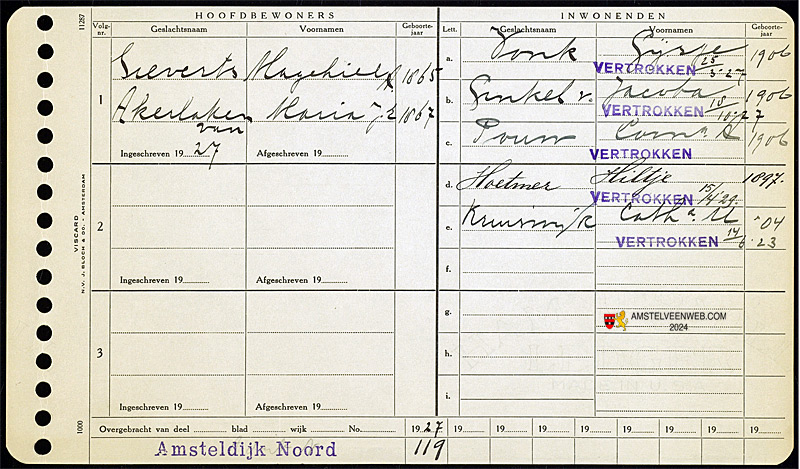 HOOFDBEWONERS
Volg- nr. Geslachtsnaam Voornamen Geboorte- jaar
1 Sieverts 1865
Akerlaken Maria J. E. 1867
van
Ingeschreven 19 27 Afgeschreven 19
2
Ingeschreven 19 Afgeschreven 19
3
Ingeschreven 19 Afgeschreven 19
INWONENDEN
Lett. Geslachtsnaam Voornamen Geboorte- jaar
a. Vonk Gijsje 1906
VERTROKKEN 25/5-27
b. Ginkel v. Jacoba 1906
VERTROKKEN 18/10-27
c. Pouw Corna A 1906
VERTROKKEN
d. Hoetmer Hiltje 1897.
VERTROKKEN 15/4 29.
e. Kruiswijk Catha M '04
VERTROKKEN 14/6 23
f.
g.
AMSTELVEENWEB.COM
2024
h.
i.
Overgebracht van deel blad wijk No. 1927 19 19 19 19 19 19 19 19
Amsteldijk Noord 119
11287
VISCARD
N.V. J. BLOCH & CO. - AMSTERDAM
1000